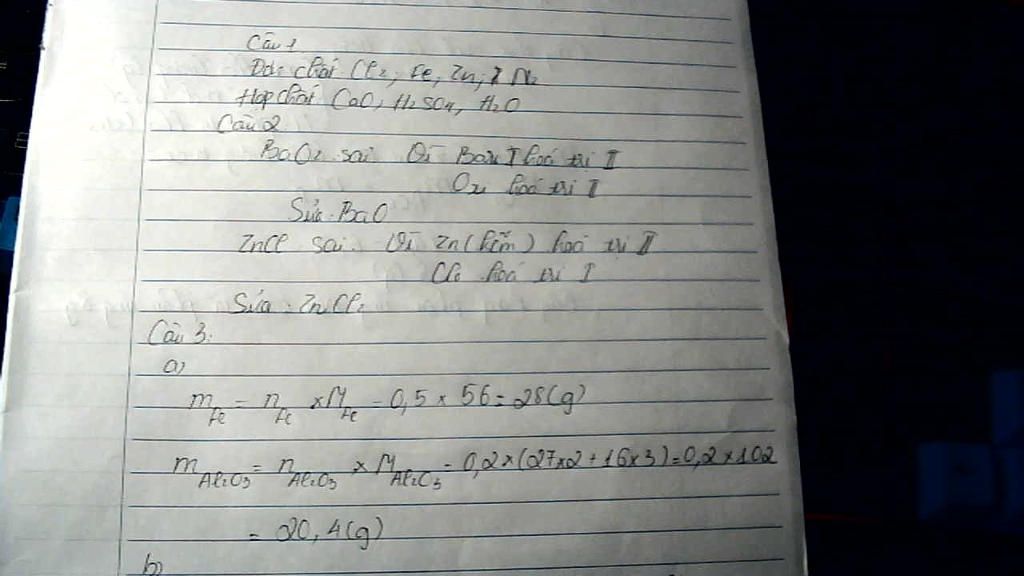 Câu 1
Đơn chất Cl2, Fe, Zn, N2
Hợp chất CaO, H2SO4, H2O
Câu 2
BaO2 sai Vì hoá trị II
Oxi hoá trị II
Sửa: BaO
ZnCl sai. Vì Zn (kẽm) hoá trị II
Clo hoá trị I
Sửa: ZnCl2
Câu 3:
a)
m Fe = n Fe × M Fe = 0,5 × 56 = 28(g)
m Al2O3 = n Al2O3 × M Al2O3 = 0,2×(27×2+16×3)=0,2×102
= 20,4(g)
b)